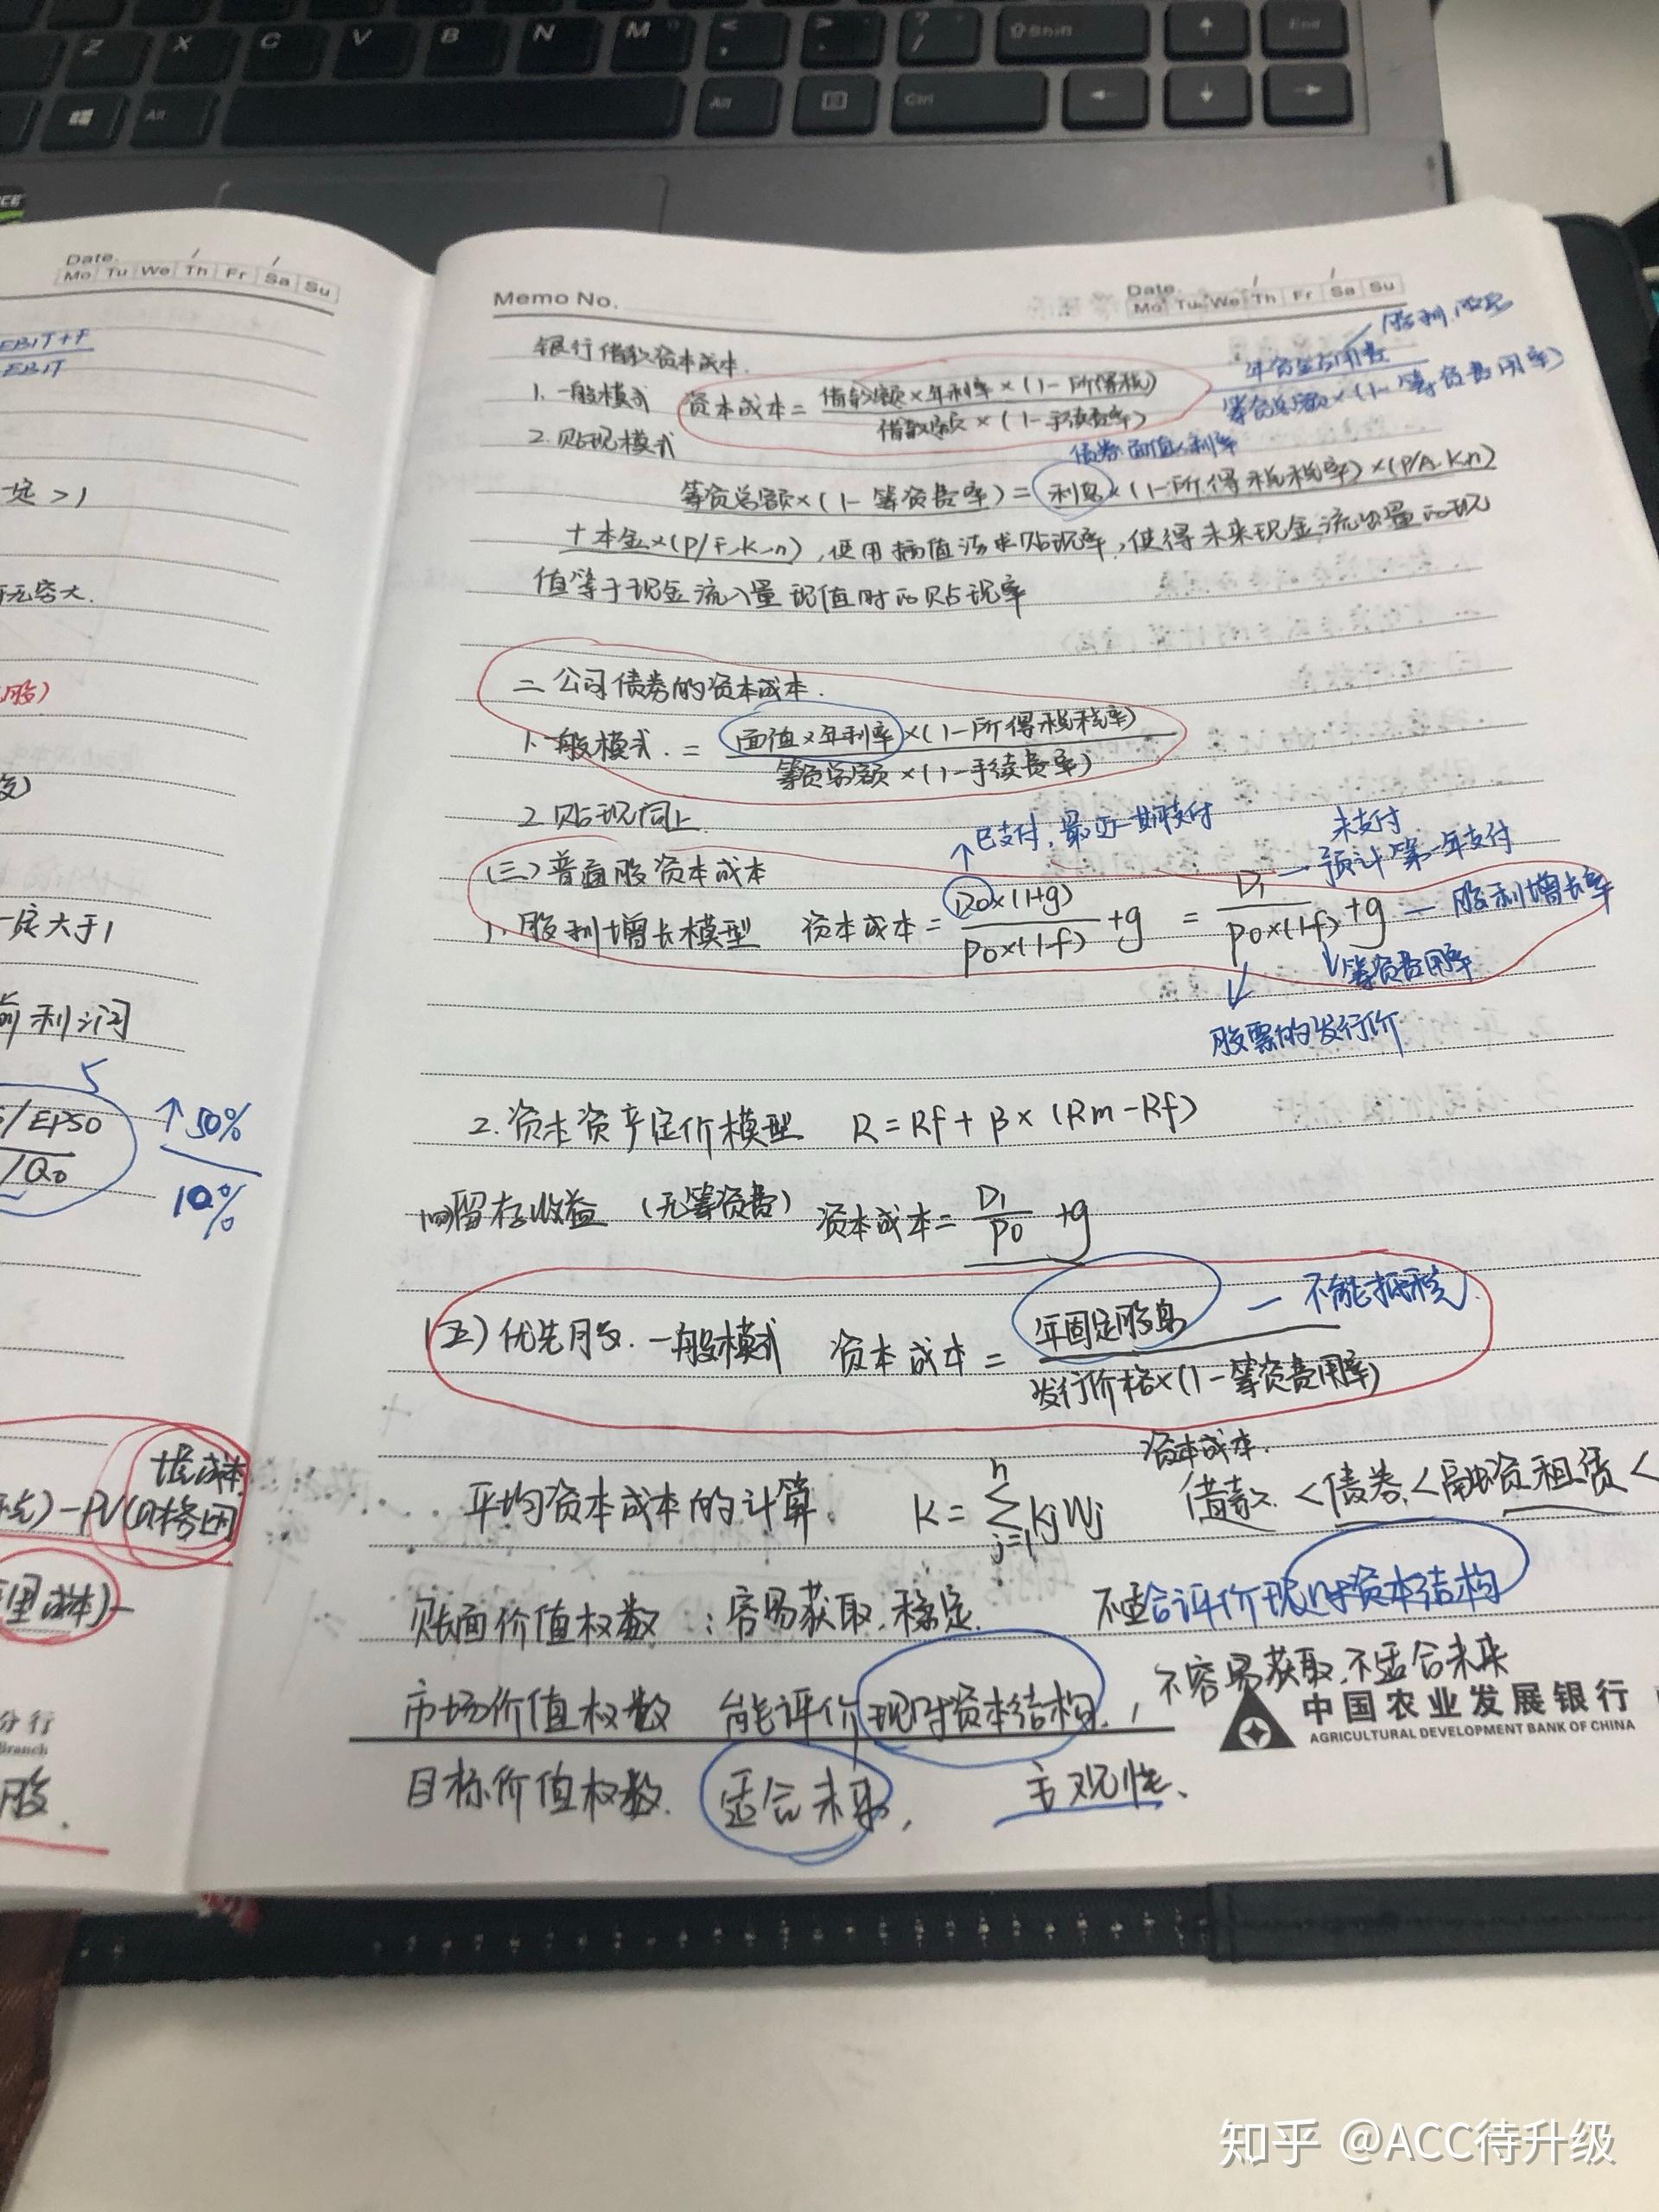 Z X C V B N M < , > . ? / Shift ↑ End
Alt Alt Ctrl ← ↓ →
Date.
Mo Tu We Th Fr Sa Su
EBIT+F
EBIT
一定>1
一定大于1
前利润
5
/EPS0
/Q0
↑50%
10%
分行
Branch
股.
Memo No.
Date.
Mo Tu We Th Fr Sa Su
银行借款资本成本.
年资金占用费
筹资总额×(1-筹资费用率)
1. 一般模式 资本成本=借款额×年利率×(1-所得税)
借款额×(1-手续费率)
2.贴现模式
债券面值×利率
筹资总额×(1-筹资费率)=利息×(1-所得税税率)×(P/A.K.n)
+本金×(P/F.K.n),使用插值法求贴现率,使得未来现金流出量的现
值等于现金流入量现值时的贴现率
二 公司债券的资本成本.
1.一般模式.=面值×年利率×(1-所得税税率)
筹资总额×(1-手续费率)
2.贴现同上
↑已支付,最近一期支付
未支付
预计第一年支付
(三)普通股资本成本
1.股利增长模型 资本成本=D0×(1+g) +g = D1 +g — 股利增长率
P0×(1-f) P0×(1-f)
↓筹资费用率
股票的发行价
2.资本资产定价模型 R=Rf+β×(Rm-Rf)
(四)留存收益 (无筹资费) 资本成本=D1/P0 +g
(五)优先股.一般模式 资本成本=年固定股息 — 不能抵税.
发行价格×(1-筹资费用率)
资本成本.
平均资本成本的计算. K=∑KjWj 借款.<债券.<融资租赁<
n
j=1
账面价值权数:容易获取.稳定. 不适合评价现时资本结构
市场价值权数 能评价现时资本结构.,不容易获取.不适合未来
目标价值权数. 适合未来, 主观性、
中国农业发展银行
AGRICULTURAL DEVELOPMENT BANK OF CHINA
知乎 @ACC待升级